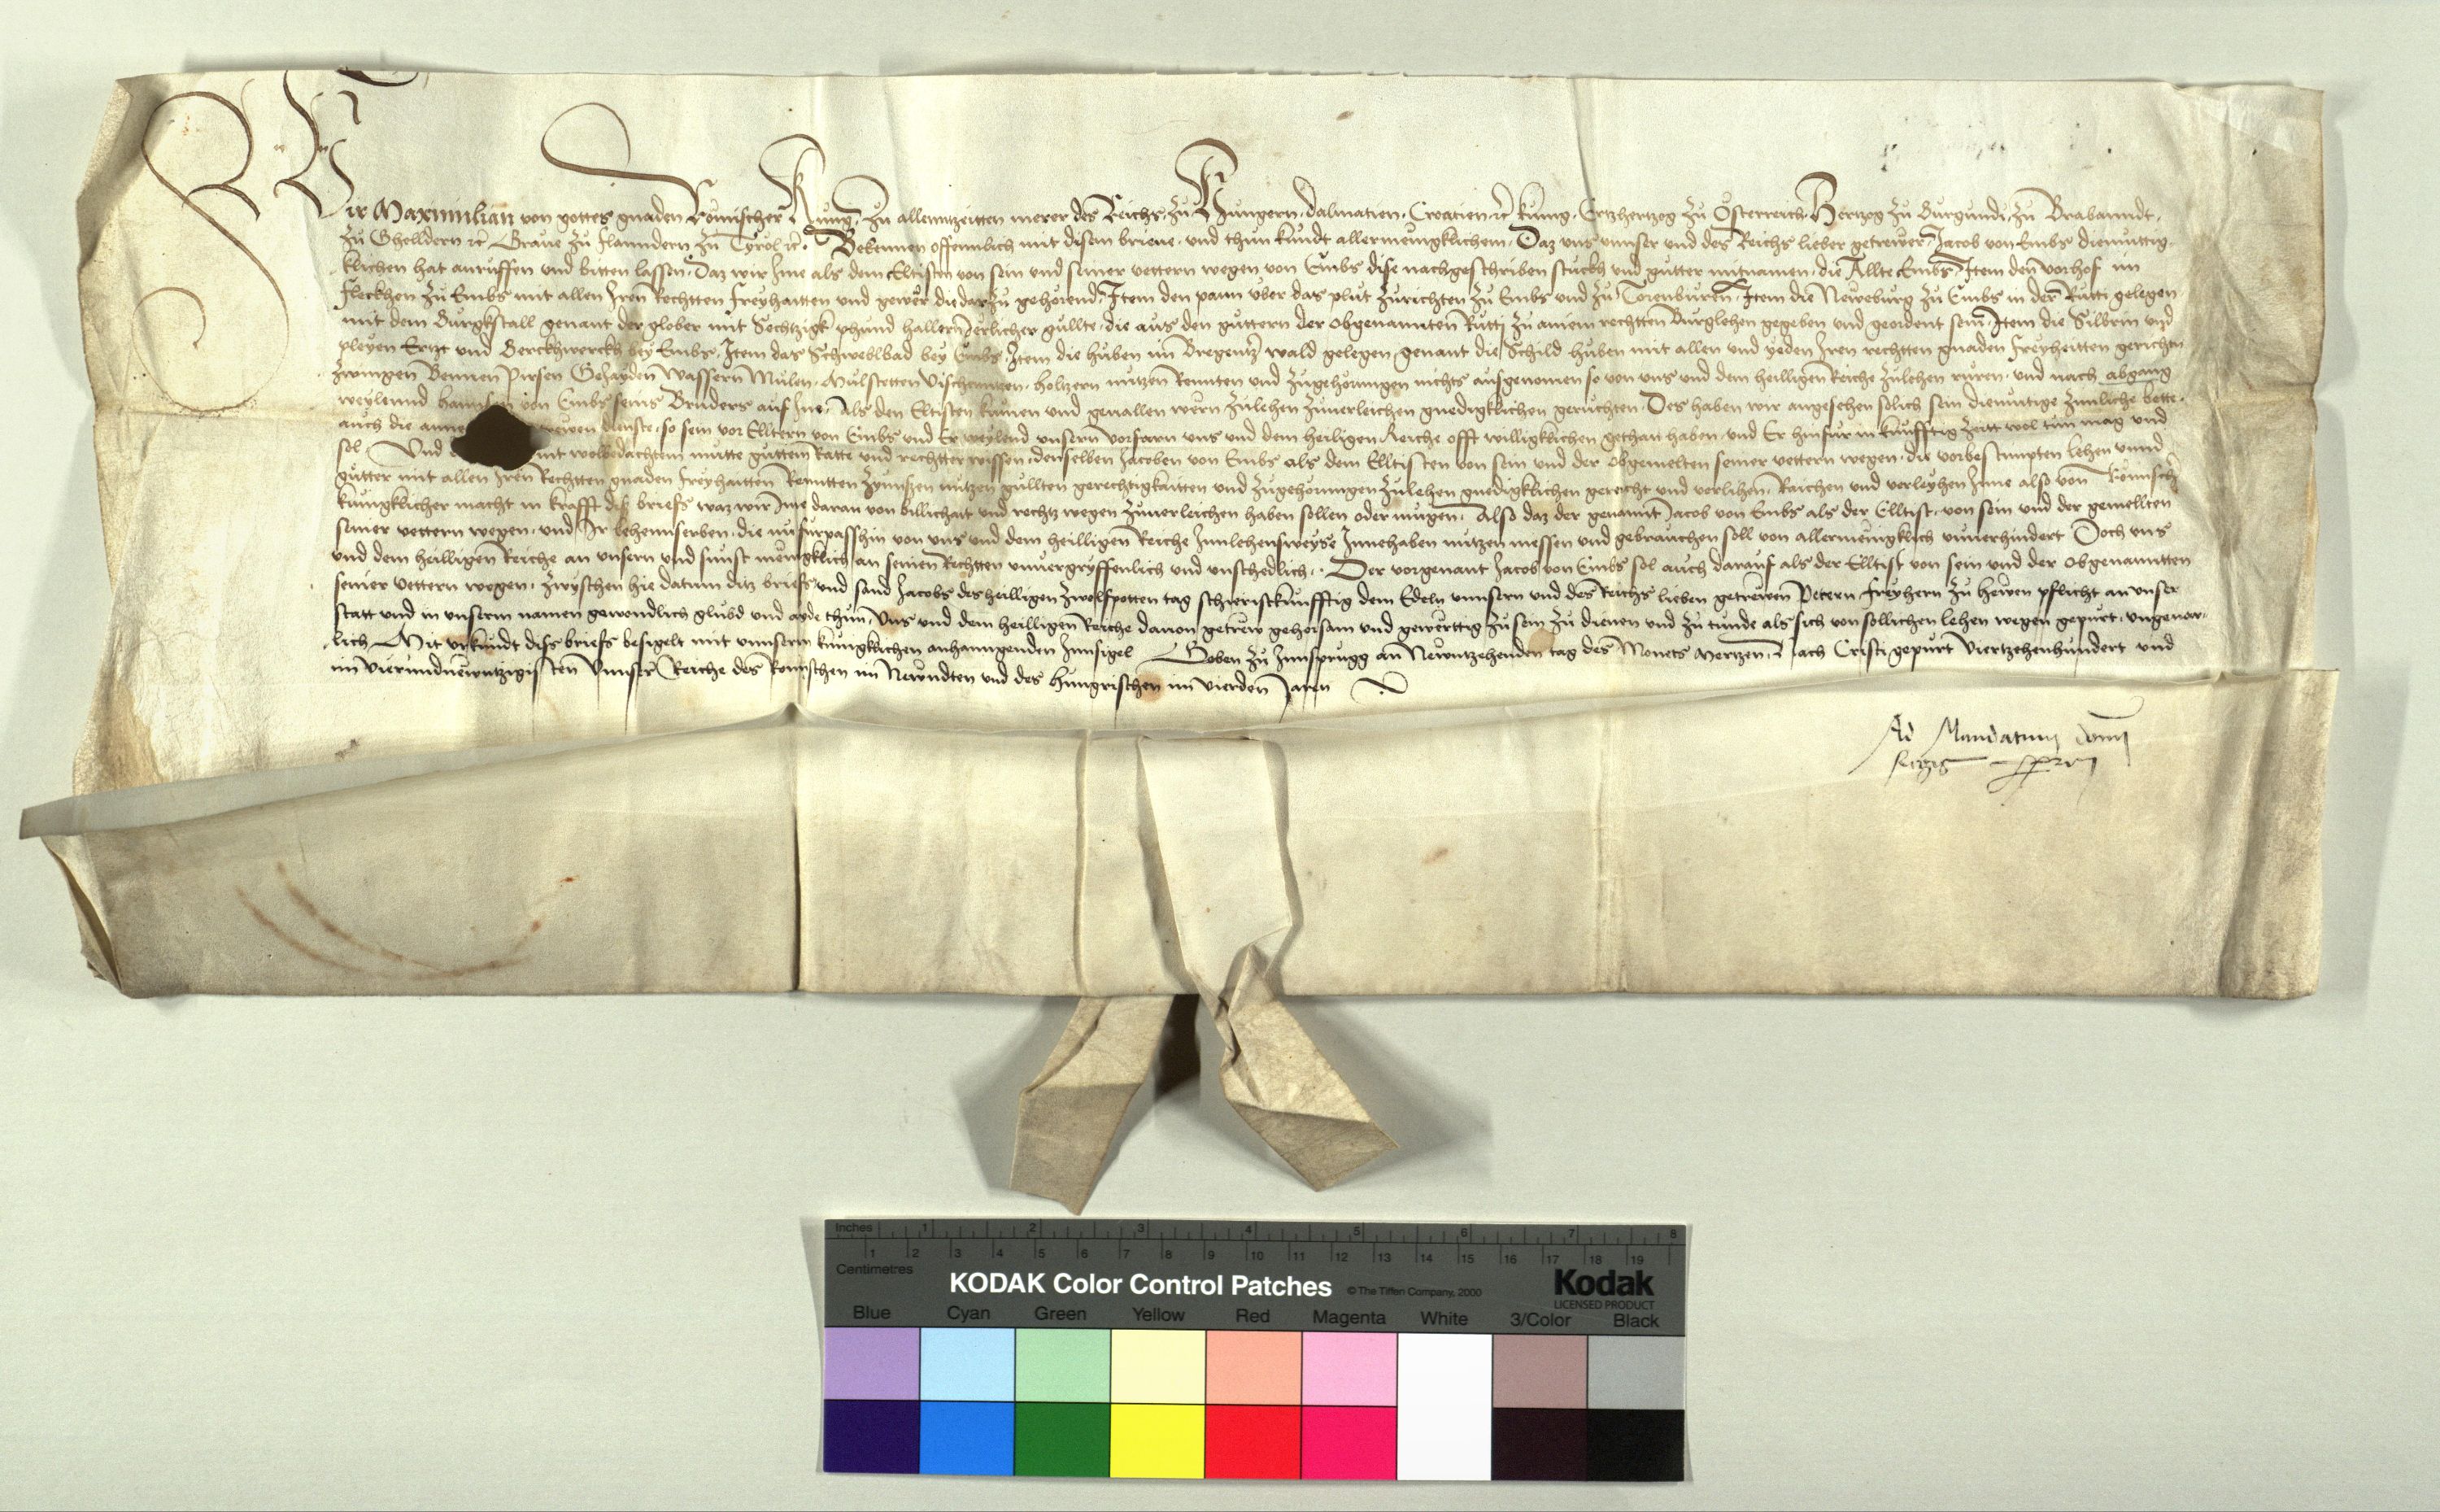 Wir Maximilian von gottes gnaden Römischer Kunig, zu allenntzeitten merer des Reichs, zu Hungern, dalmatien, Croatien ꝛc kunig, Ertzhertzog zu Österreich, Hertzog zu Burgundi, zu Brabanndt,
zu Gholldern ꝛc Graue zu flanndern zu Tyrol ꝛc. Bekennen offennlich mit disem brieue, und thun kundt allermenigklichem, Daz uns unnser und des Reichs lieber getrewer, Jacob von Embs diemuttig-
klichen hat anruffen und bitten lassen, Daz wir Jme als dem Eltisten von sein und seiner vettern wegen von Embs dise nachgeschriben stuckh und gutter mitnamen, die Allte Embs, Item den vorhof im
fleckhen zu Embs mit allen Jren Rechtten freyhaitten und gewer die darzu gehörend, Item den pann uber das plut zurichten zu Embs und zu Torenburen, Item die Newburg zu Embs in der Rutti gelegen
mit dem Burgkstall genant der glober mit Sechtzigk phund hallern Jerlicher gullte, die aus den guttern der obgenannten Rutti zu ainem rechtten Burglehen gegeben und geordent sein, Item die Silbrin und
pleyen Ertzt und Berckhwerckh bey Embs, Item das Schweblbad bey Embs, Item die huben im Bregentzr wald gelegen, genant die Schild huben mit allen und yeden Jren rechtten gnaden freyheitten gerichtn
zwingen Bennen Pirsen Gehayden Wassern Mulen, Mulstetten Vischenntzen, holtzern nutzen Rennten und zugehörungen nichts ausgenomen so von uns und dem heilligen Reiche zulehen ruren, und nach abgang
weylennd hannsen von Embs seins Bruders auf Jne, Als den Eltisten kumen und geuallen wern zulehen zuuerleichen gnedigklichen geruchten, Des haben wir angesehen solich sein diemutige zimliche bette,
auch die anne trewen dienste, so sein vor Elltern von Embs und Er weylend unsern vorfarn uns und dem heiligen Reiche offt willigklichen gethan haben, und Er hinfur in kunfftig zeitt wol tun mag und
sol, Und mit wolbedachtem mutte guttem Ratte und rechtter wissen, denselben Jacoben von Embs als dem Elltisten von sein und der obgemelten seiner vettern wegen, die vorbestimpten lehen unnd
gutter mit allen Jren Rechtten gnaden freyhaitten Rentten Zynnszen nutzen gullten gerechtigkaitten und zugehörungen zulehen gnedigklichen gereicht und verlihen, Raichen und verleyhen Jme also von Römischr
kunigklicher macht in krafft dis briefs waz wir Jme daran von billichait und rechtz wegen zuuerleichen haben sollen oder mugen, Also daz der genannt Jacob von Embs als der Elltist, von sein und der gemellten
seiner vettern wegen, und Jr lehennserben, die nu furpasshin von uns und dem heilligen Reiche Jnnlehensweyse Jnnehaben nutzen niessen und gebrauchen soll von allermenigklich unuerhindert Doch uns
und dem heilligen Reiche an unsern und sunst menigklich an seinen Rechtten unuergryffenlich und unschedlich. Der vorgenant Jacob von Embs sol auch darauf als der Elltist von sein und der obgenanntten
seiner vettern wegen, zwyschen hie datum ditz briefs und sand Jacobs des heilligen zwolfpotten tag schieristkunfftig dem Edeln unnsern und des Reichs lieben getrewen Petern freyhern zu hewen pflicht an unser
statt und in unserm namen gewondlich glubd und ayde thun, Uns und dem heilligen Reiche dauon getrew gehorsam und gewerttig zu sein zu dienen und zu tunde als sich von sollichen lehen wegen gepurt, ungeuar-
lich Mit urkundt diss briefs besigelt mit unnserm kunigklichen anhanngenden Jnnsigel Geben zu Jnnsprugg an Newntzehenden tag des Monets Mertzen, Nach Cristi gepurt Viertzehenhundert und
im Vierundnewntzigisten Unnser Reiche des Romischen im Newndten und des Hungrischen im vierden Jaren
Ad Mandatum domi
Regis ppriu
Inches 1 2 3 4 5 6 7 8
1 2 3 4 5 6 7 8 9 10 11 12 13 14 15 16 17 18 19
Centimetres
KODAK Color Control Patches © The Tiffen Company, 2000 Kodak
LICENSED PRODUCT
Blue Cyan Green Yellow Red Magenta White 3/Color Black